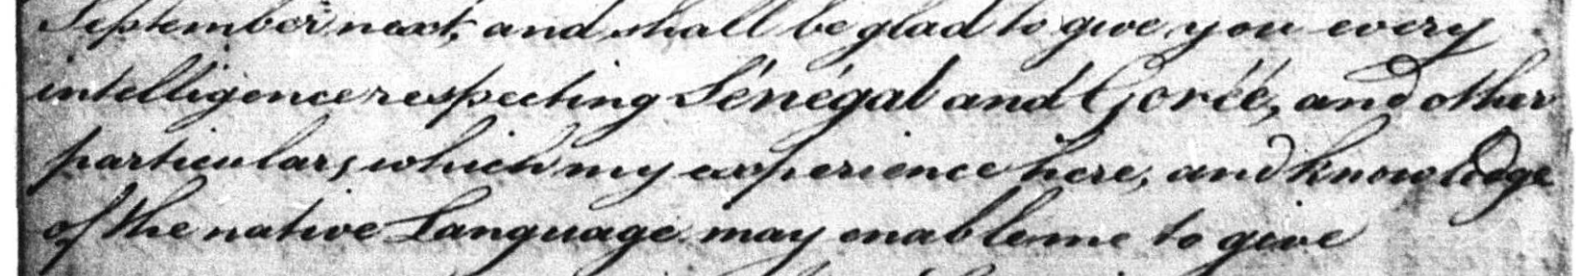 September next, and shall be glad to give you every
intelligence respecting Sénégal and Goréé, and other
particulars, which my experience here, and knowledge
of the native Language may enable me to give